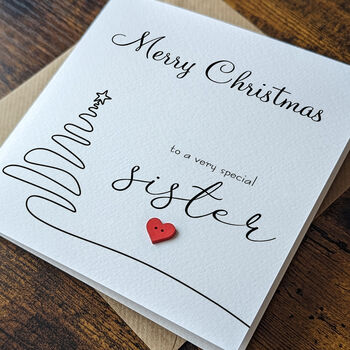 Merry Christmas
to a very special
sister